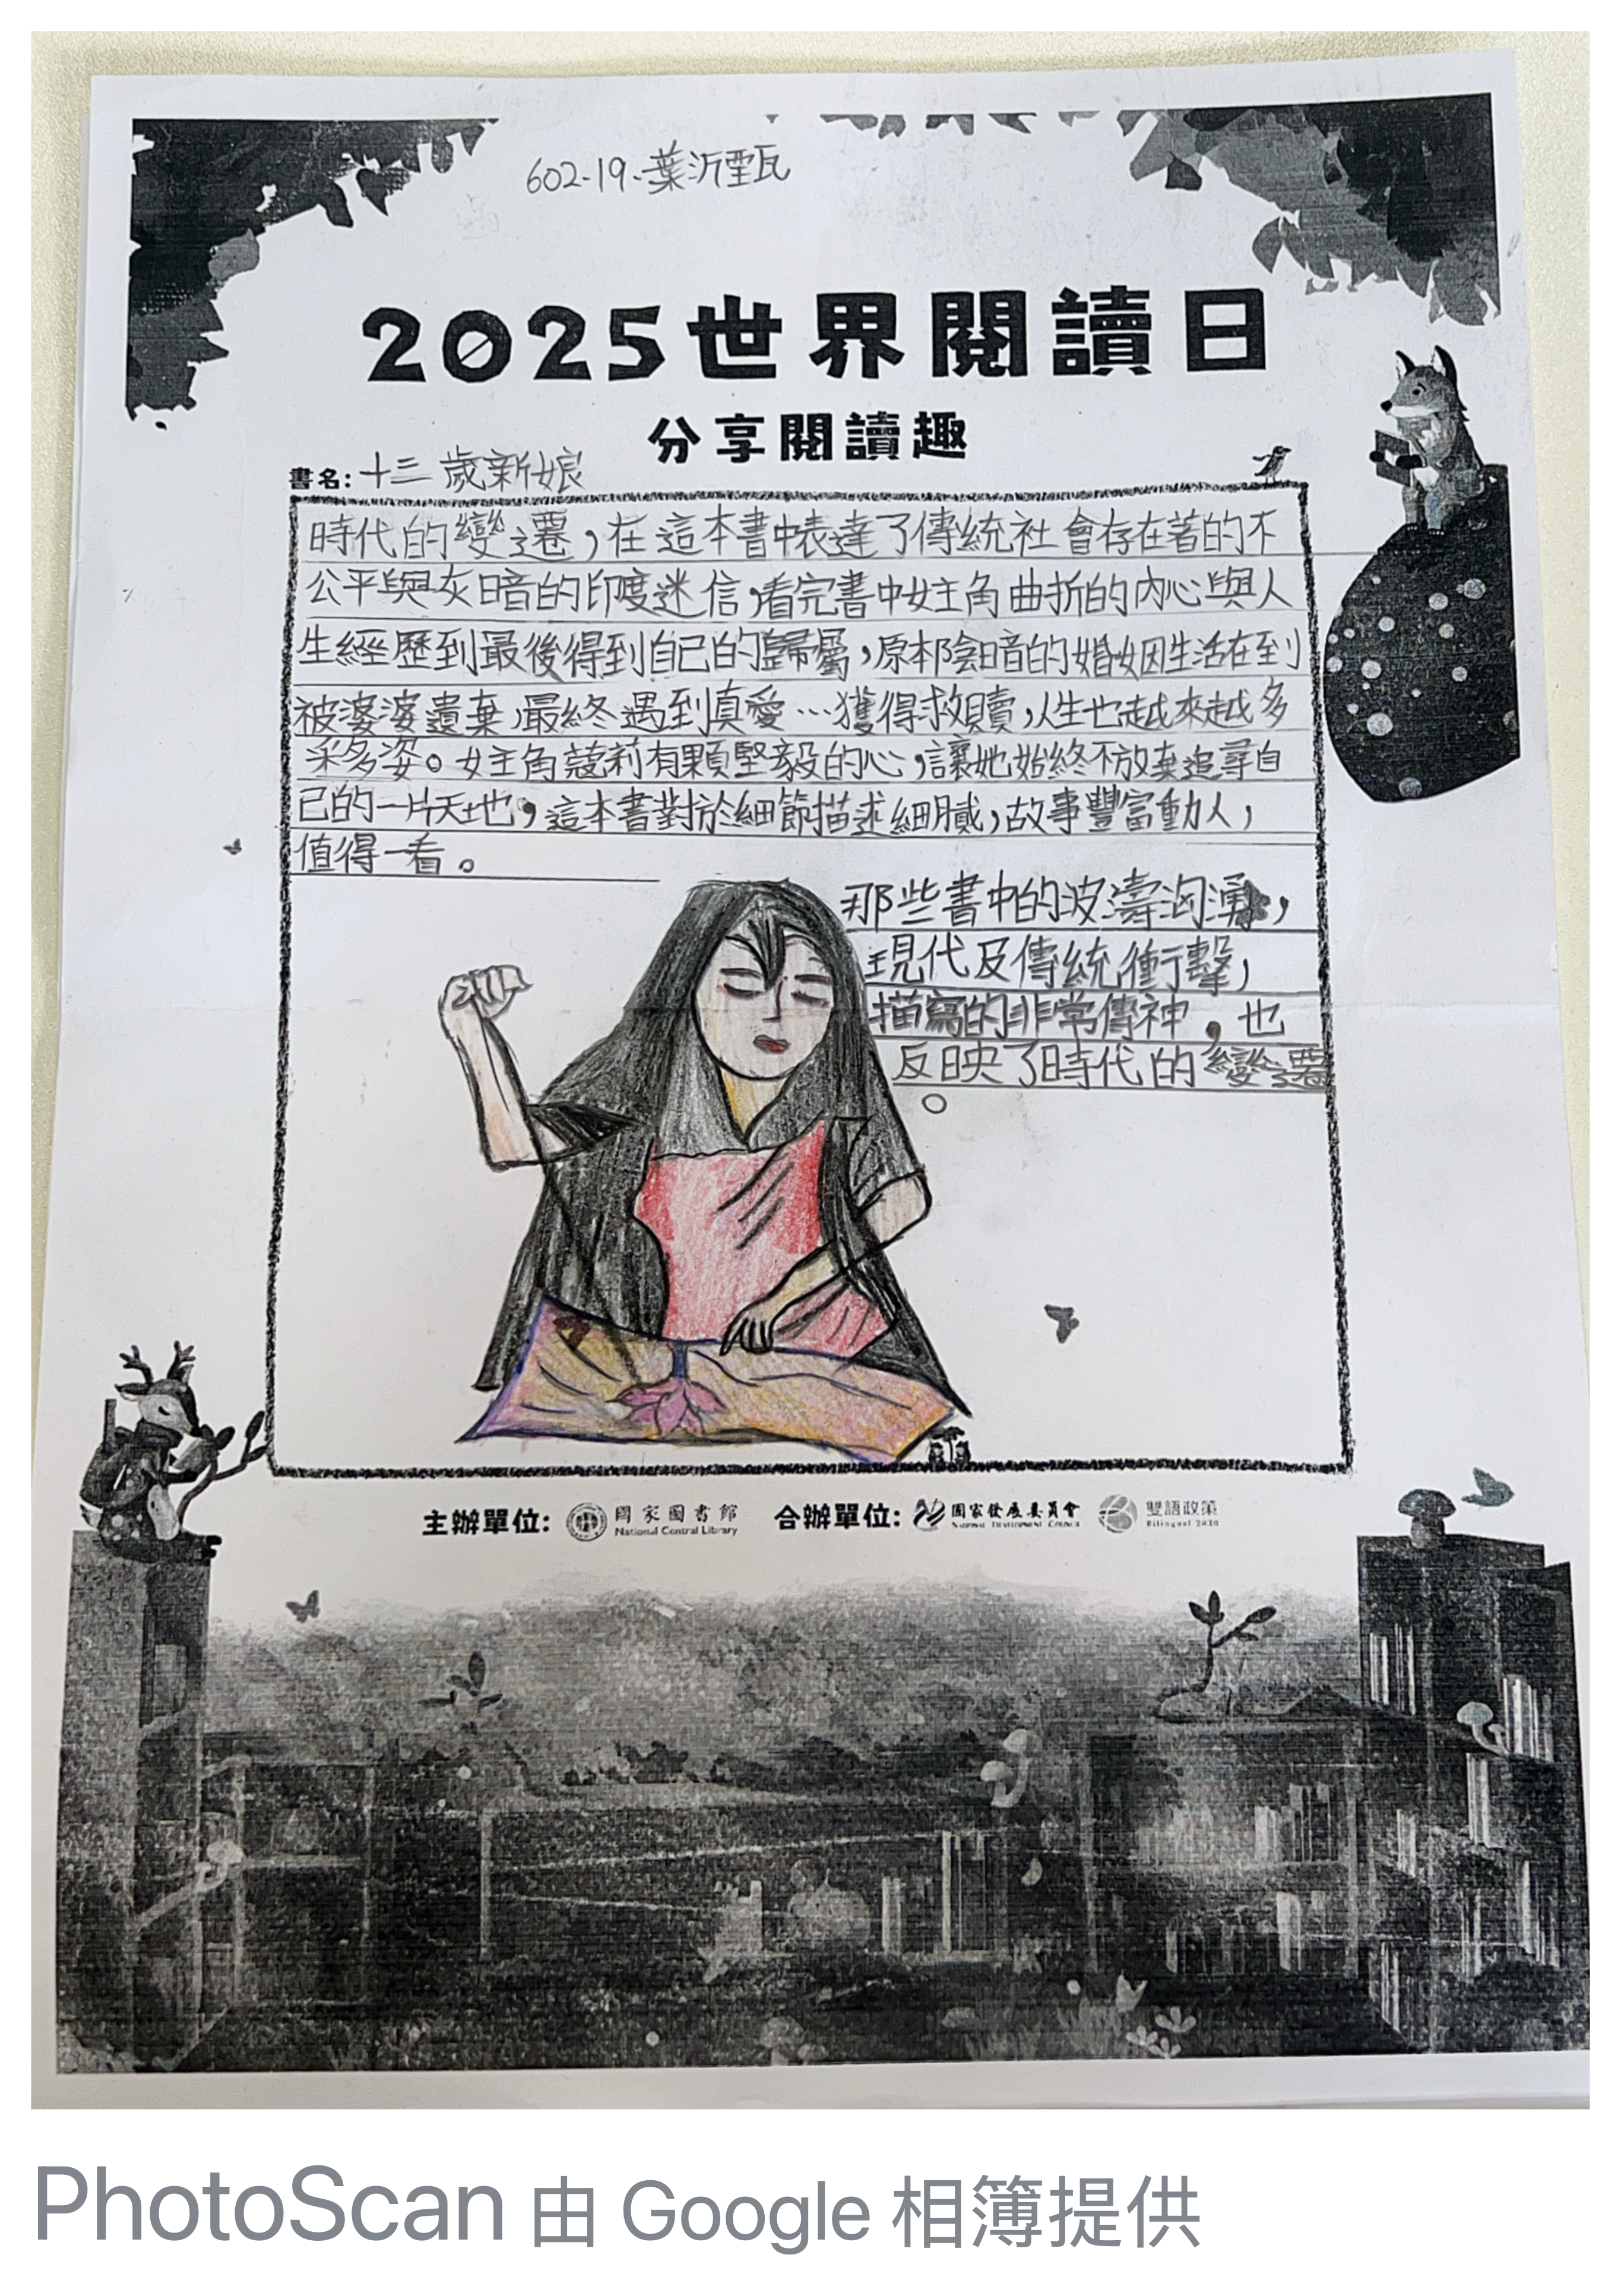 602-19-葉沂甄
2025世界閱讀日
分享閱讀趣
書名:十三歲新娘
時代的變遷,在這本書中表達了傳統社會存在著的不
公平與灰暗的印度迷信,看完書中女主角曲折的內心與人
生經歷到最後得到自己的歸屬,原本陰暗的婚姻生活在到
被婆婆遺棄,最終遇到真愛…獲得救贖,人生也越來越多
采多姿。女主角蔻莉有顆堅毅的心,讓她始終不放棄追尋自
己的一片天地,這本書對於細節描述細膩,故事豐富動人,
值得一看。
那些書中的波濤洶湧,
現代及傳統衝擊,
描寫的非常傳神,也
反映了時代的變遷
。
主辦單位: 國家圖書館 National Central Library 合辦單位: 國家發展委員會 NATIONAL DEVELOPMENT COUNCIL 雙語政策 Bilingual 2030
PhotoScan 由 Google 相簿提供